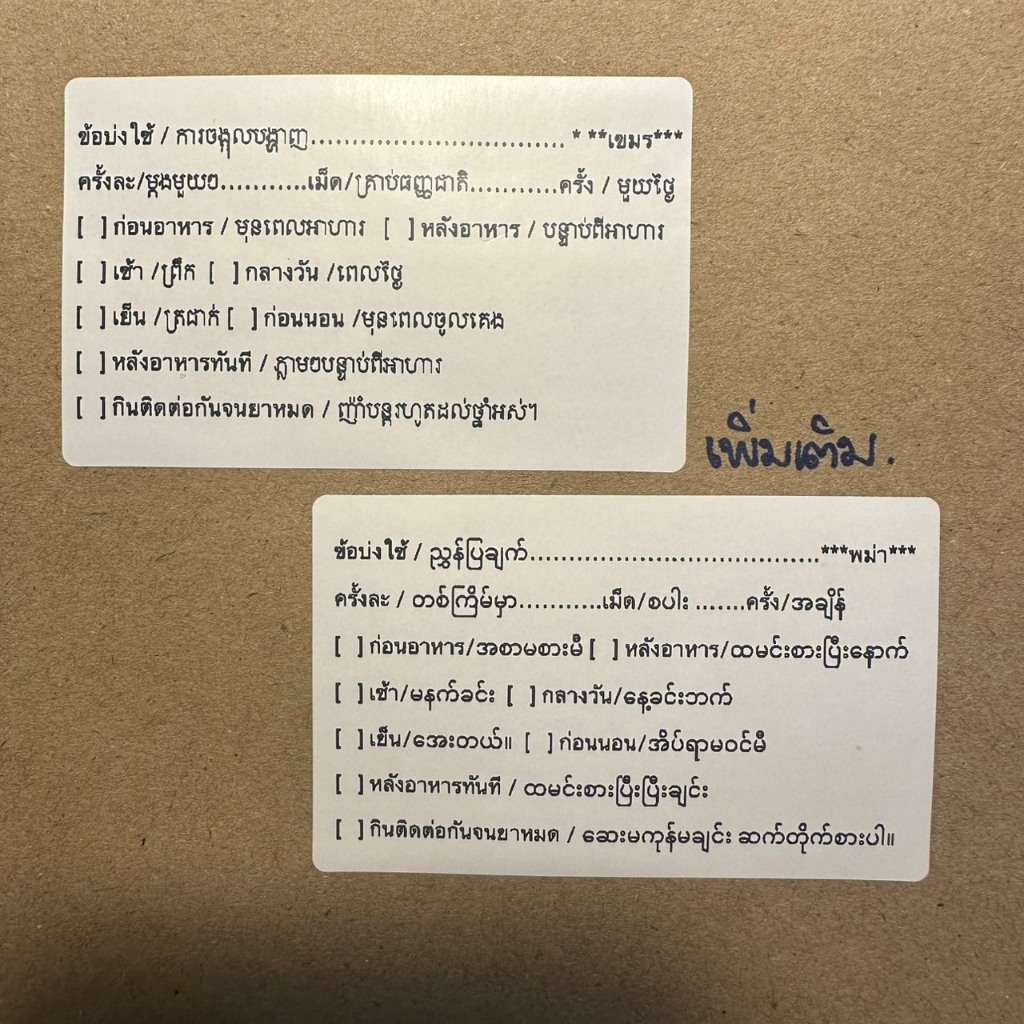 ข้อบ่งใช้ / ការចង្អុលបង្ហាញ................................. * **เขมร***
ครั้งละ/ម្តងមួយៗ...........เม็ด/គ្រាប់ធញ្ញជាតិ...........ครั้ง / មួយថ្ងៃ
[ ] ก่อนอาหาร / មុនពេលអាហារ [ ] หลังอาหาร / បន្ទាប់ពីអាហារ
[ ] เช้า /ព្រឹក [ ] กลางวัน /ពេលថ្ងៃ
[ ] เย็น /ត្រជាក់ [ ] ก่อนนอน /មុនពេលចូលគេង
[ ] หลังอาหารทันที / ភ្លាមៗបន្ទាប់ពីអាហារ
[ ] กินติดต่อกันจนยาหมด / ញ៉ាំបន្តរហូតដល់ថ្នាំអស់។
เพิ่มเติม.
ข้อบ่งใช้ / ညွှန်ပြချက်.....................................***พม่า***
ครั้งละ / တစ်ကြိမ်မှာ...........เม็ด/စပါး .......ครั้ง/အချိန်
[ ] ก่อนอาหาร/အစာမစားမီ [ ] หลังอาหาร/ထမင်းစားပြီးနောက်
[ ] เช้า/မနက်ခင်း [ ] กลางวัน/နေ့ခင်းဘက်
[ ] เย็น/အေးတယ်။ [ ] ก่อนนอน/အိပ်ရာမဝင်မီ
[ ] หลังอาหารทันที / ထမင်းစားပြီးပြီးချင်း
[ ] กินติดต่อกันจนยาหมด / ဆေးမကုန်မချင်း ဆက်တိုက်စားပါ။